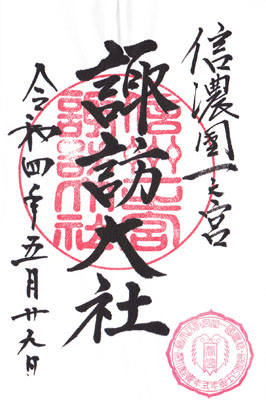 信濃國一之宮
諏訪大社
令和四年五月廿九日